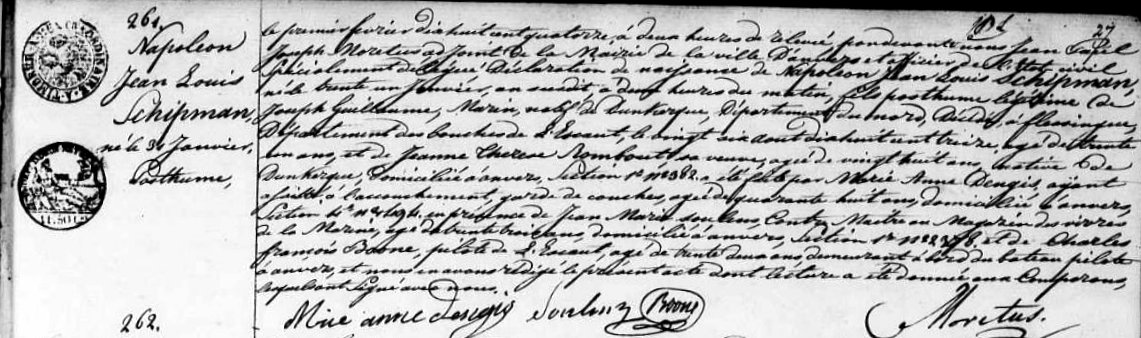 261.
Napoleon
Jean Louis
Schipman,
né le 31 Janvier.
Posthume,
27
le premier fevrier dixhuit cent quatorze, à deux heures de relevée, pardevant nous Jean Papel
Joseph Moretus adjoint de la Mairie de la ville D'anvers et officier de l'Etat civil
spécialement délégué, Déclaration de naissance de Napoleon Jean Louis Schipman,
né le trente un Janvier, an susdit, à deux heures du matin, fils posthume légitime de
Joseph Guillaume, Marin, natif de Dunkerque, Département du nord, Décédé, à flessingue,
Département des bouches de L'Escaut, le vingt six aout dixhuit cent treize, agé de trente
un ans, et de Jeanne Therese Rombout sa veuve, agée de vingt huit ans, native de
Dunkerque, Domiciliée à anvers, Section 1e nº 382. a été faite par Marie Anne Dengis, ayant
assisté à l'accouchement, garde de couches, agée de quarante huit ans, domiciliée à anvers,
Section 4e nº en présence de Jean Marie Soulous, Contre Maitre au Magazin des vivres
de la Marine, agé de trente trois ans, domicilié à anvers, Section 1e nº et de Charles
françois Boone, pilote de L'Escaut, agé de trente deux ans, demeurant à bord du bateau pilote
à anvers, et nous en avons rédigé le présent acte dont lecture a été donnée aux Comparans,
requérant signé avec nous.
Marie anne dengis Boone Moretus.
262.